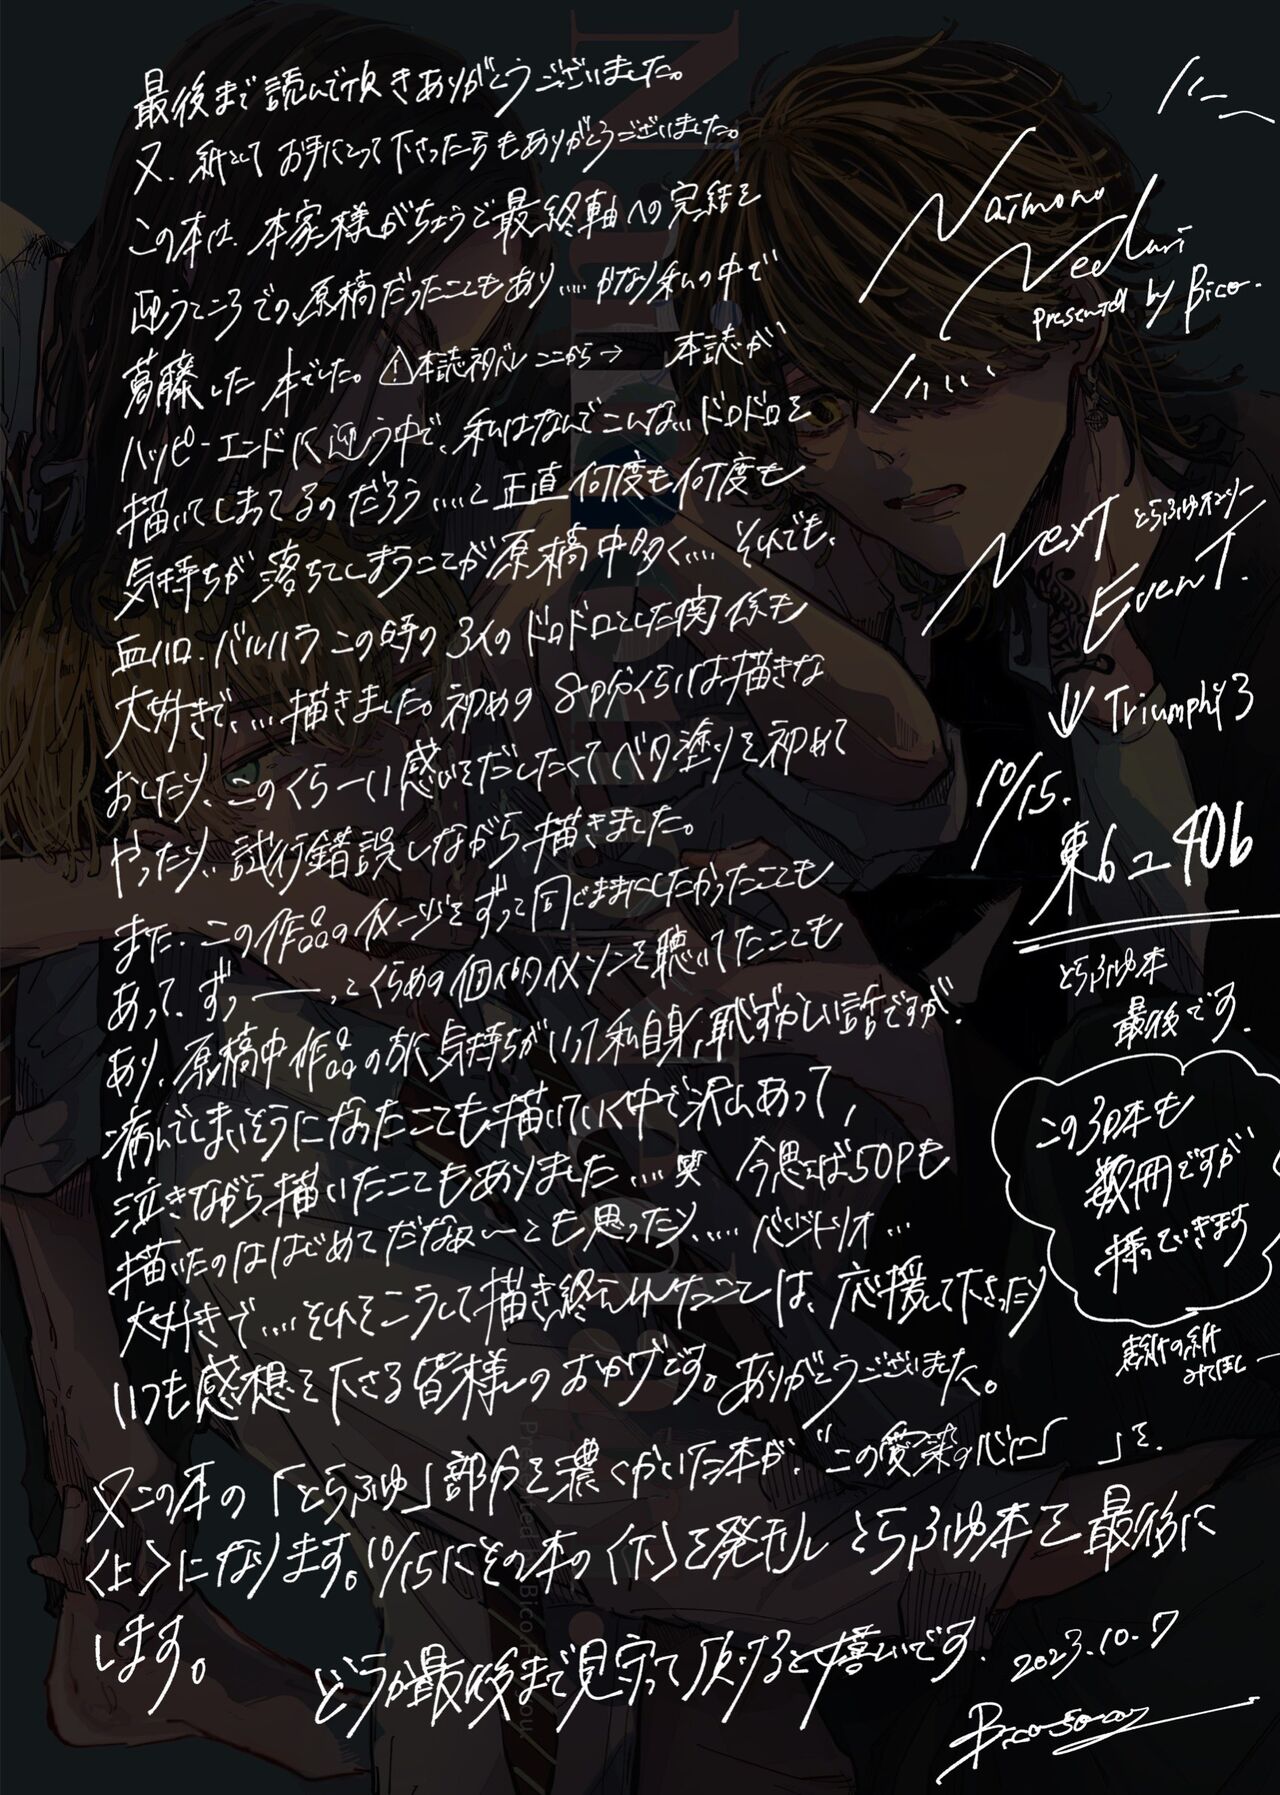 最後まで読んで頂きありがとうございました。
又、紙としてお手にとって下さった方もありがとうございました。
この本は、本家様がちょうど最終軸への完結を
迎うところでの、原稿だったこともあり.... かなり私の中で
葛藤した本でした。⚠本誌ネタバレここから→ 本誌が
ハッピーエンドに迎う中で、私はなんでこんな...ドロドロを
描いてしまってるのだろう.....と正直何度も何度も
気持ちが落ちてしまうことが原稿中多く.... それでも、
血ハロ、バルハラこの時の3人のドロドロとした関係も
大好きで、...描きました。初めの8P分くらいは描きな
おしたり、このくらーい感じをだしたくてベタ塗りを初めて
やったり、試行錯誤しながら描きました。
また、この作品のイメージをずっと同じままにしたかったことも
あって、ずっ――っとくらめの個人的イメソンを聴いてたことも
あり、原稿中作品の方に気持ちがいって私自身、恥ずかしい話ですが、
病んでしまいそうになったことも描いていく中で沢山あって、
泣きながら描いたこともありました....笑 今思えば50Pも
描いたのははじめてだなぁ〜とも思ったり、.... バジトリオ...
大好きで....それをこうして描き終えれたことは、応援して下さったり
いつも感想を下さる皆様のおかげです。ありがとうございました。
又この本の「とらふゆ」部分を濃くかいた本が、"この愛染の心に「　　」を、
〈上〉になります。10/15にその本の〈下〉を発刊しとらふゆ本を最後に
します。
どうか最後まで見守って頂けると嬉しいです。
2023.10.7
Naimono
Nedari
presented by Bico.
Next とらふゆオンリー
Event.
↓ Triumph 3
10/15.
東6ユ40b
とらふゆ本
最後です。
この3P本も
数冊ですが
持っていきます
みてほしー